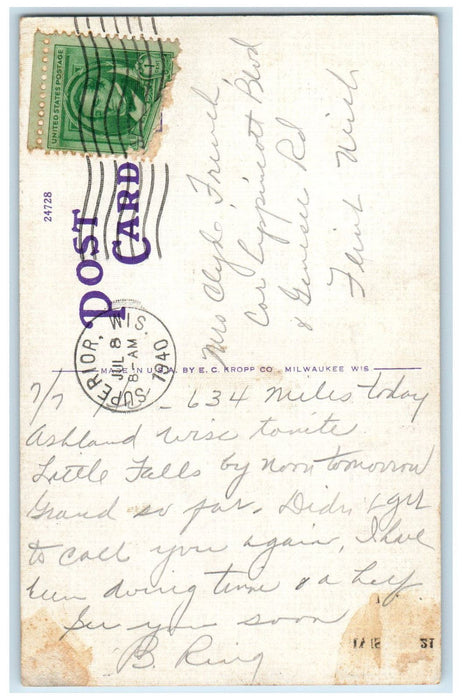 UNITED STATES POSTAGE
1
24728
POST
CARD
SUPERIOR, WIS.
JUL 8
8 - AM
1940
Mrs Clyde French
Cor Lippincott Blvd
& Genesee Rd
Flint Mich
MADE IN U.S.A. BY E. C. KROPP CO., MILWAUKEE WIS
7/7 - 634 Miles today
Ashland Wisc tonite
Little Falls by noon tomorrow
Grand so far. Didn't get
to call you again, I have
been doing time & a half.
See you soon
B. Ring
21